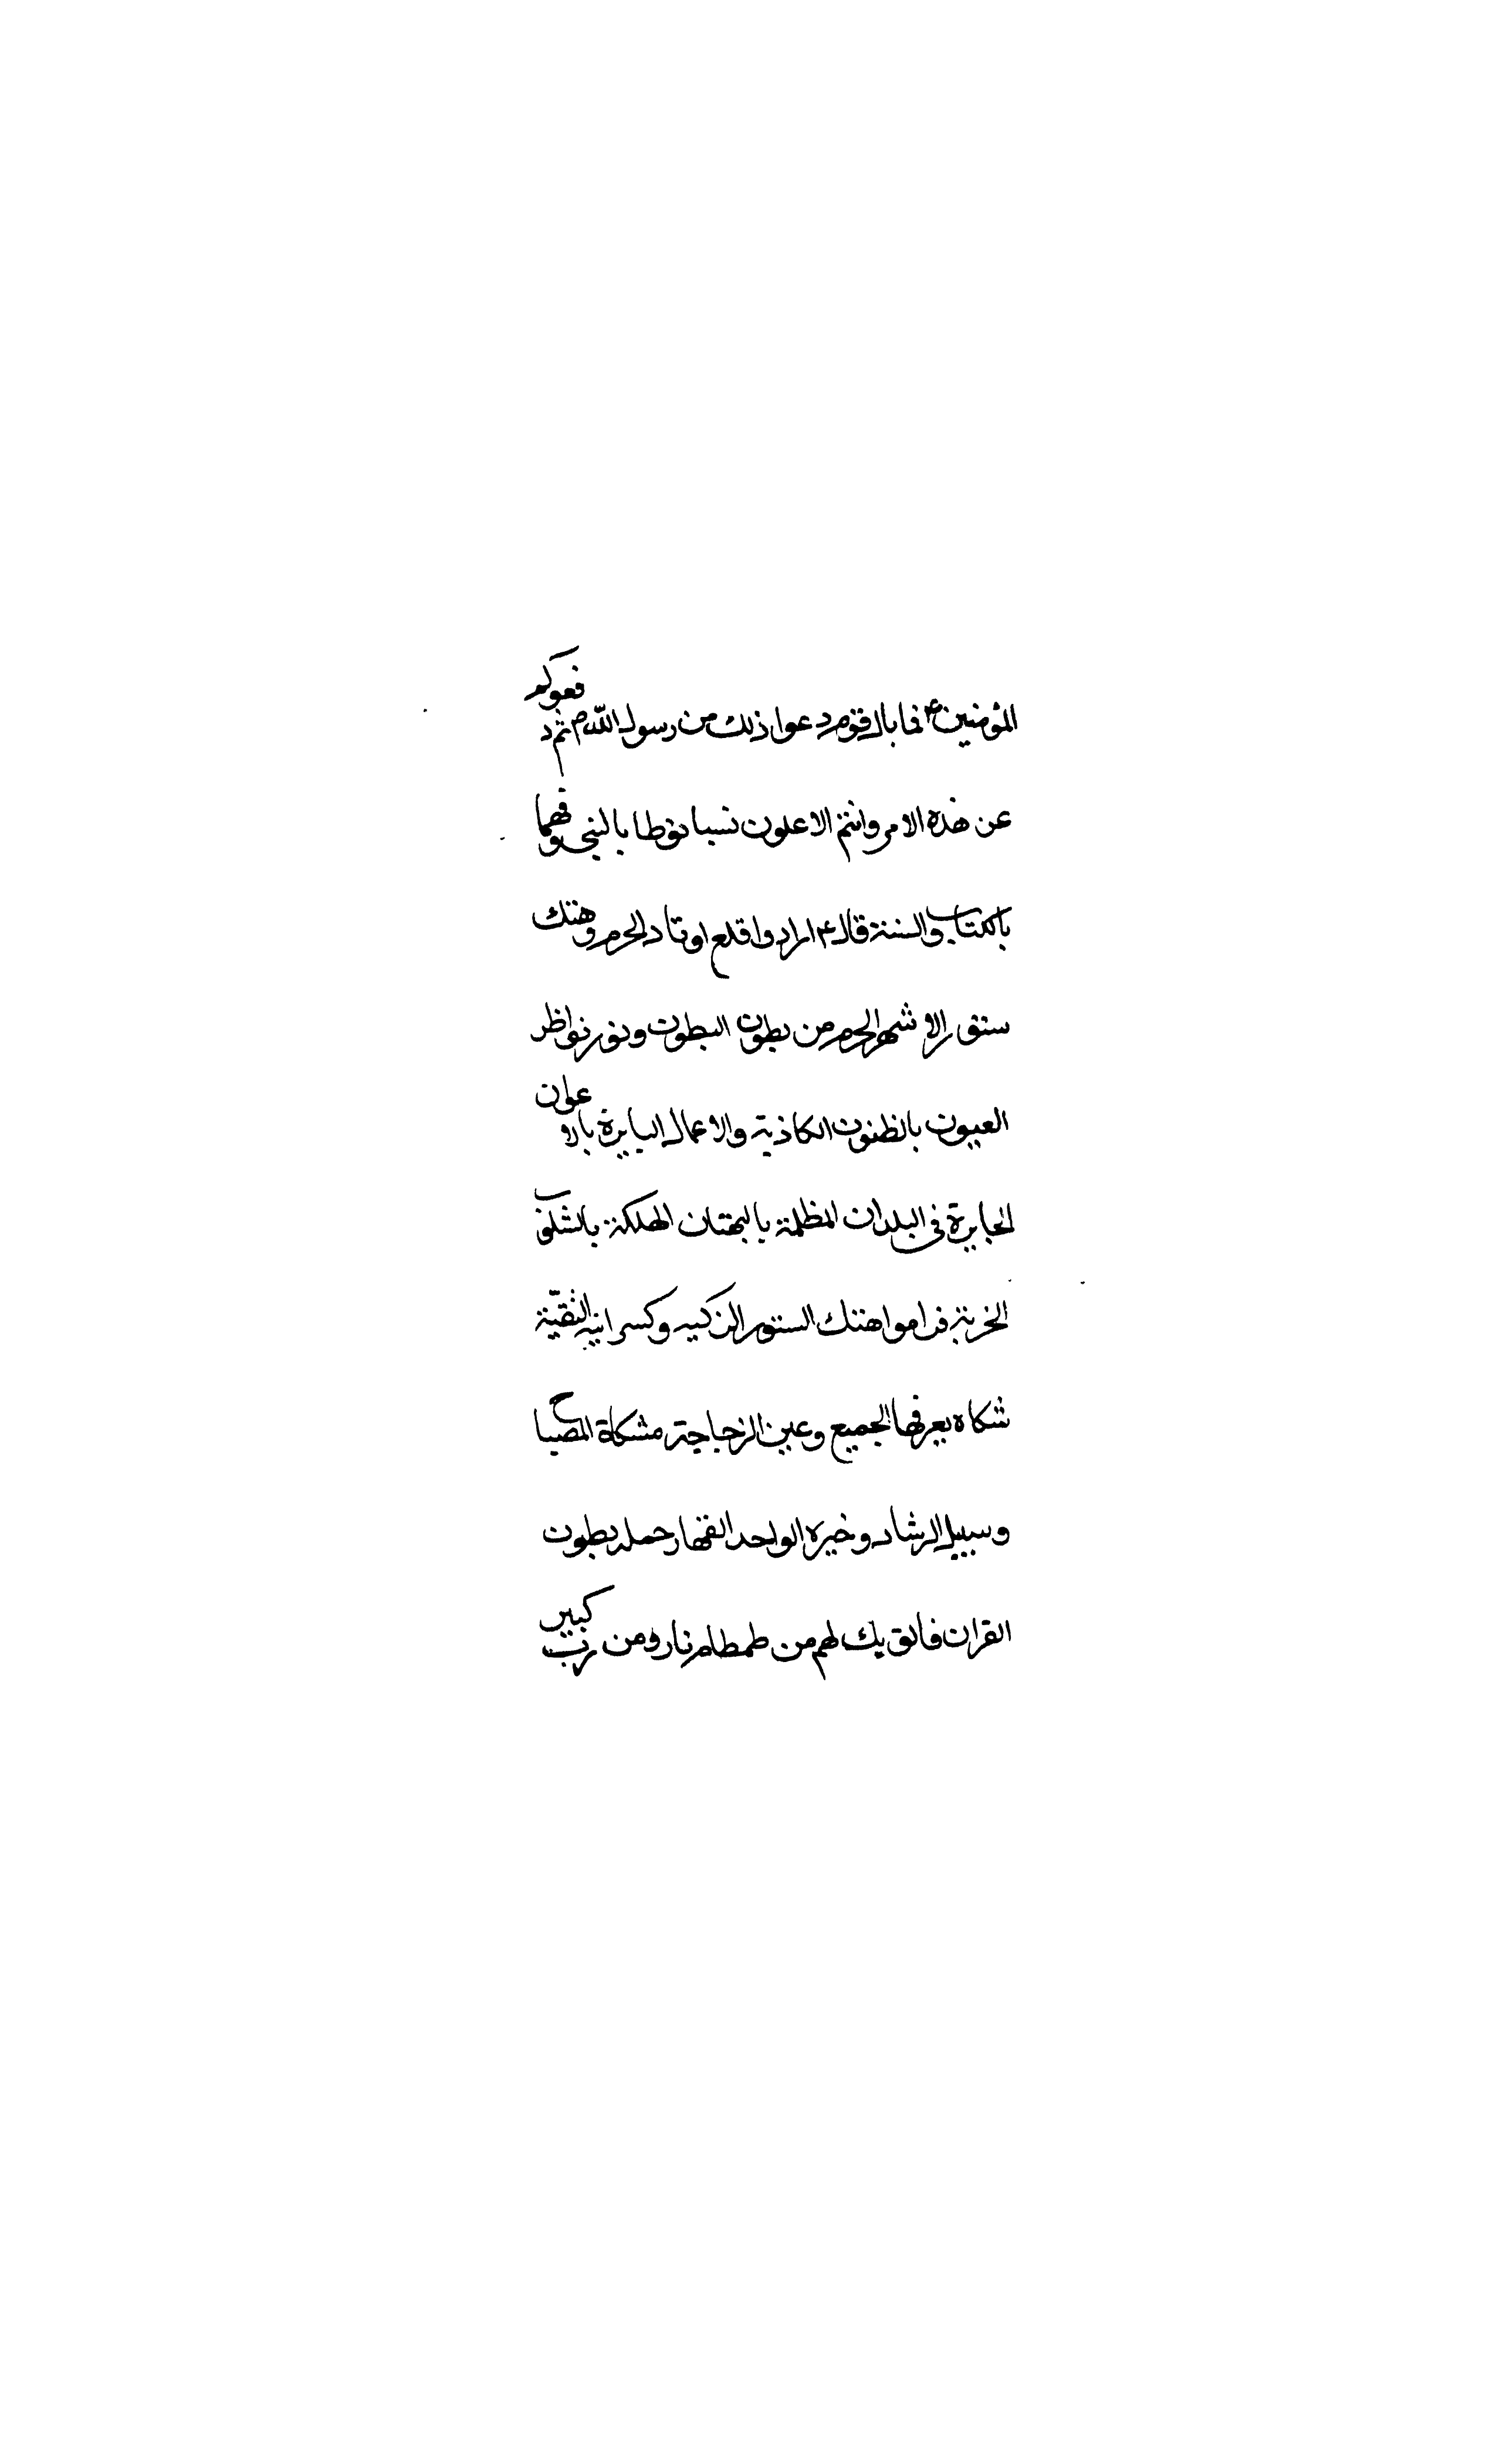 المؤمنين ع فما بال قوم دعوا ذلك من رسول الله ص ثم دفعوكم
عن هذه الامر وانتم الاعلون نسبا نوطا بالنبي وفهما
بالكتاب والسنة قال ع ارادوا قلع اوتاد الحرم وهتك
ستور الاشهر الحرم من بطون البطون ونور نواظر
العيون بالظنون الكاذبة والاعمال البايرة بالاعوان
الجايرة في البلدان المظلمة بالبهتان المهلكة بالقلوب
الخربة فراموا هتك الستور الزكية وكسر انية النقية
مشكاة يعرفها الجميع وعين الزجاجة مشكاة المصباح
وسبيل الرشاد وخيرة الواحد القهار حملة بطون
القران فالويل لهم من طمطام نار ومن رب كبير